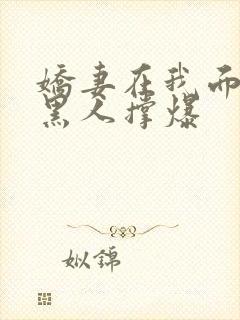 娇妻在我面
黑人撑爆
姒锦